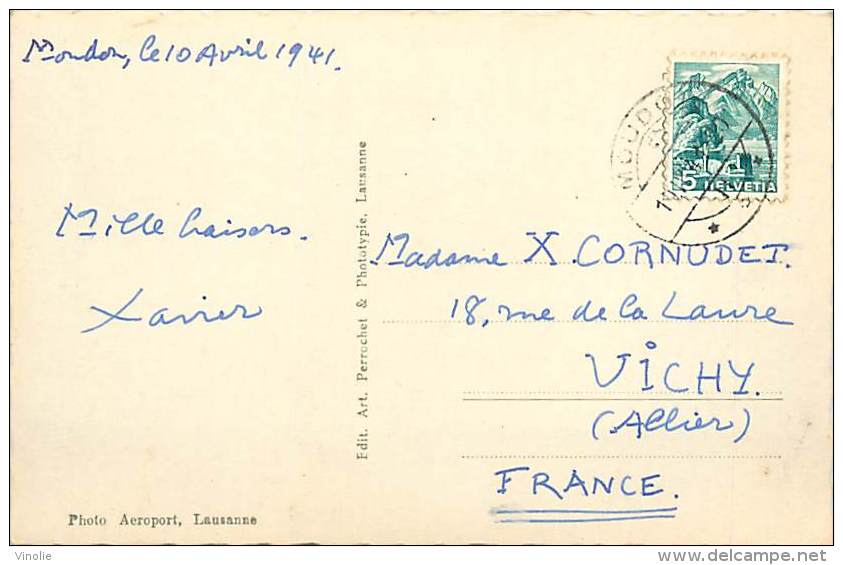 Moudon, le 10 Avril 1941.
MOUDON
5 HELVETIA
Mille baisers.
Xavier
Edit. Art. Perrochet & Phototypie, Lausanne
Madame X. CORNUDET.
18, rue de la Laure
VICHY.
(Allier)
FRANCE.
Photo Aeroport, Lausanne
Vinolie
delcampe.net